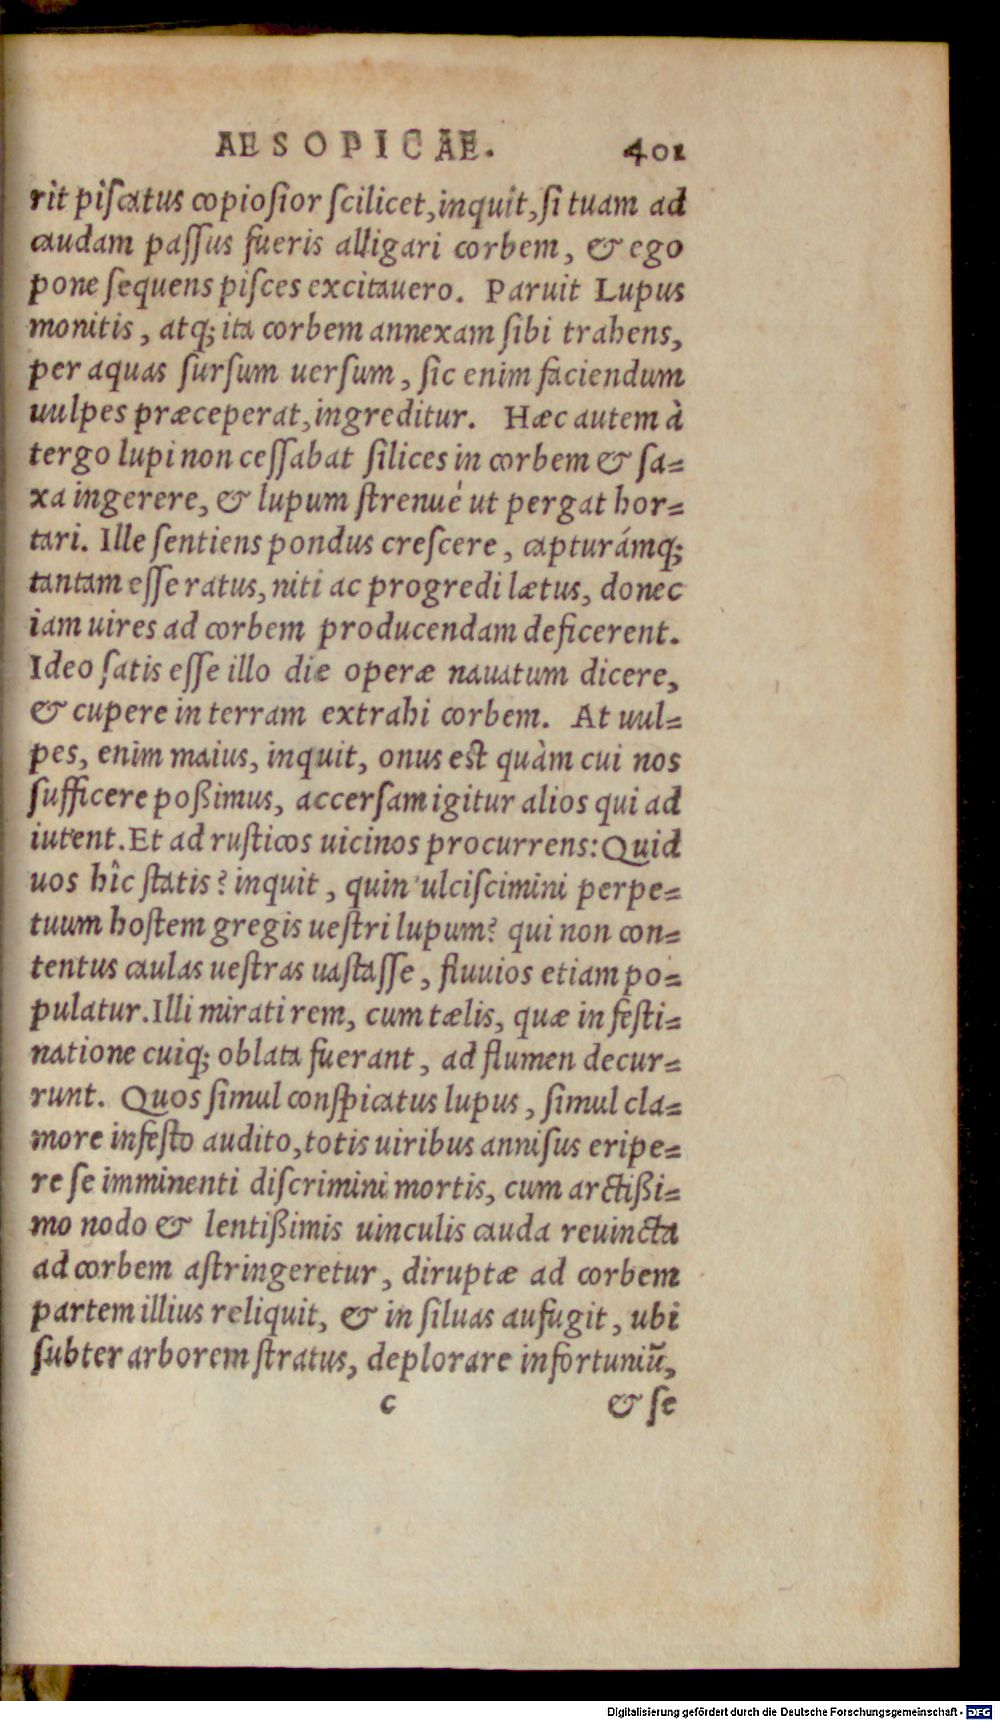 AESOPICAE. 401
rit piſcatus copioſior ſcilicet, inquit, ſi tuam ad
caudam paſſus fueris alligari corbem, & ego
pone ſequens piſces excitauero. Paruit Lupus
monitis, atq; ita corbem annexam ſibi trahens,
per aquas ſurſum uerſum, ſic enim faciendum
uulpes præceperat, ingreditur. Hæc autem à
tergo lupi non ceſſabat ſilices in corbem & ſa=
xa ingerere, & lupum ſtrenué ut pergat hor=
tari. Ille ſentiens pondus creſcere, capturámq;
tantam eſſe ratus, niti ac progredi lætus, donec
iam uires ad corbem producendam deficerent.
Ideo ſatis eſſe illo die operæ nauatum dicere,
& cupere in terram extrahi corbem. At uul=
pes, enim maius, inquit, onus est quàm cui nos
ſufficere poßimus, accerſam igitur alios qui ad
iuuent. Et ad ruſticos uicinos procurrens: Quid
uos hîc ſtatis? inquit, quin ulciſcimini perpe=
tuum hoſtem gregis ueſtri lupum? qui non con=
tentus caulas ueſtras uaſtaſſe, fluuios etiam po=
pulatur. Illi mirati rem, cum tælis, quæ in feſti=
natione cuiq; oblata fuerant, ad flumen decur=
runt. Quos ſimul conſpicatus lupus, ſimul cla=
more infeſto audito, totis uiribus anniſus eripe=
re ſe imminenti diſcrimini mortis, cum arctißi=
mo nodo & lentißimis uinculis cauda reuincta
ad corbem aſtringeretur, diruptæ ad corbem
partem illius reliquit, & in ſiluas aufugit, ubi
ſubter arborem ſtratus, deplorare infortuniū,
c & ſe
Digitalisierung gefördert durch die Deutsche Forschungsgemeinschaft - DFG